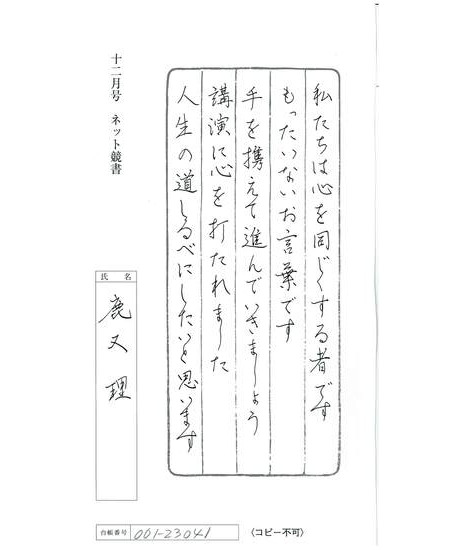 私たちは心を同じくする者です
もったいないお言葉です
手を携えて進んでいきましょう
講演に心を打たれました
人生の道しるべにしたいと思います
十二月号 ネット競書
氏名
鹿又理
台帳番号 001-23041
〈コピー不可〉